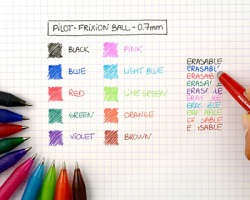 PILOT-FRIXION BALL - 0.7mm
BLACK
PINK
BLUE
LIGHT BLUE
RED
LIME GREEN
GREEN
ORANGE
VIOLET
BROWN
ERASABLE
ERASABLE
ERASABLE
ERASA
ERAS
ERAS BLE
ERA BLE
ER ABLE
EF SABLE
E ISABLE